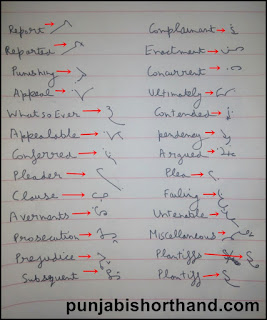 Report → Complainant →
Reported → Enactment →
Punishing → Concurrent →
Appeal → Ultimately →
Whatsoever → Contended →
Appealable → Pendency →
Conferred → Argued →
Pleader → Plea →
Clause → Failing →
Averments → Untenable →
Prosecution → Miscellaneous →
Prejudice → Plantiffs →
Subsquent → Plantiff →
punjabishorthand.com